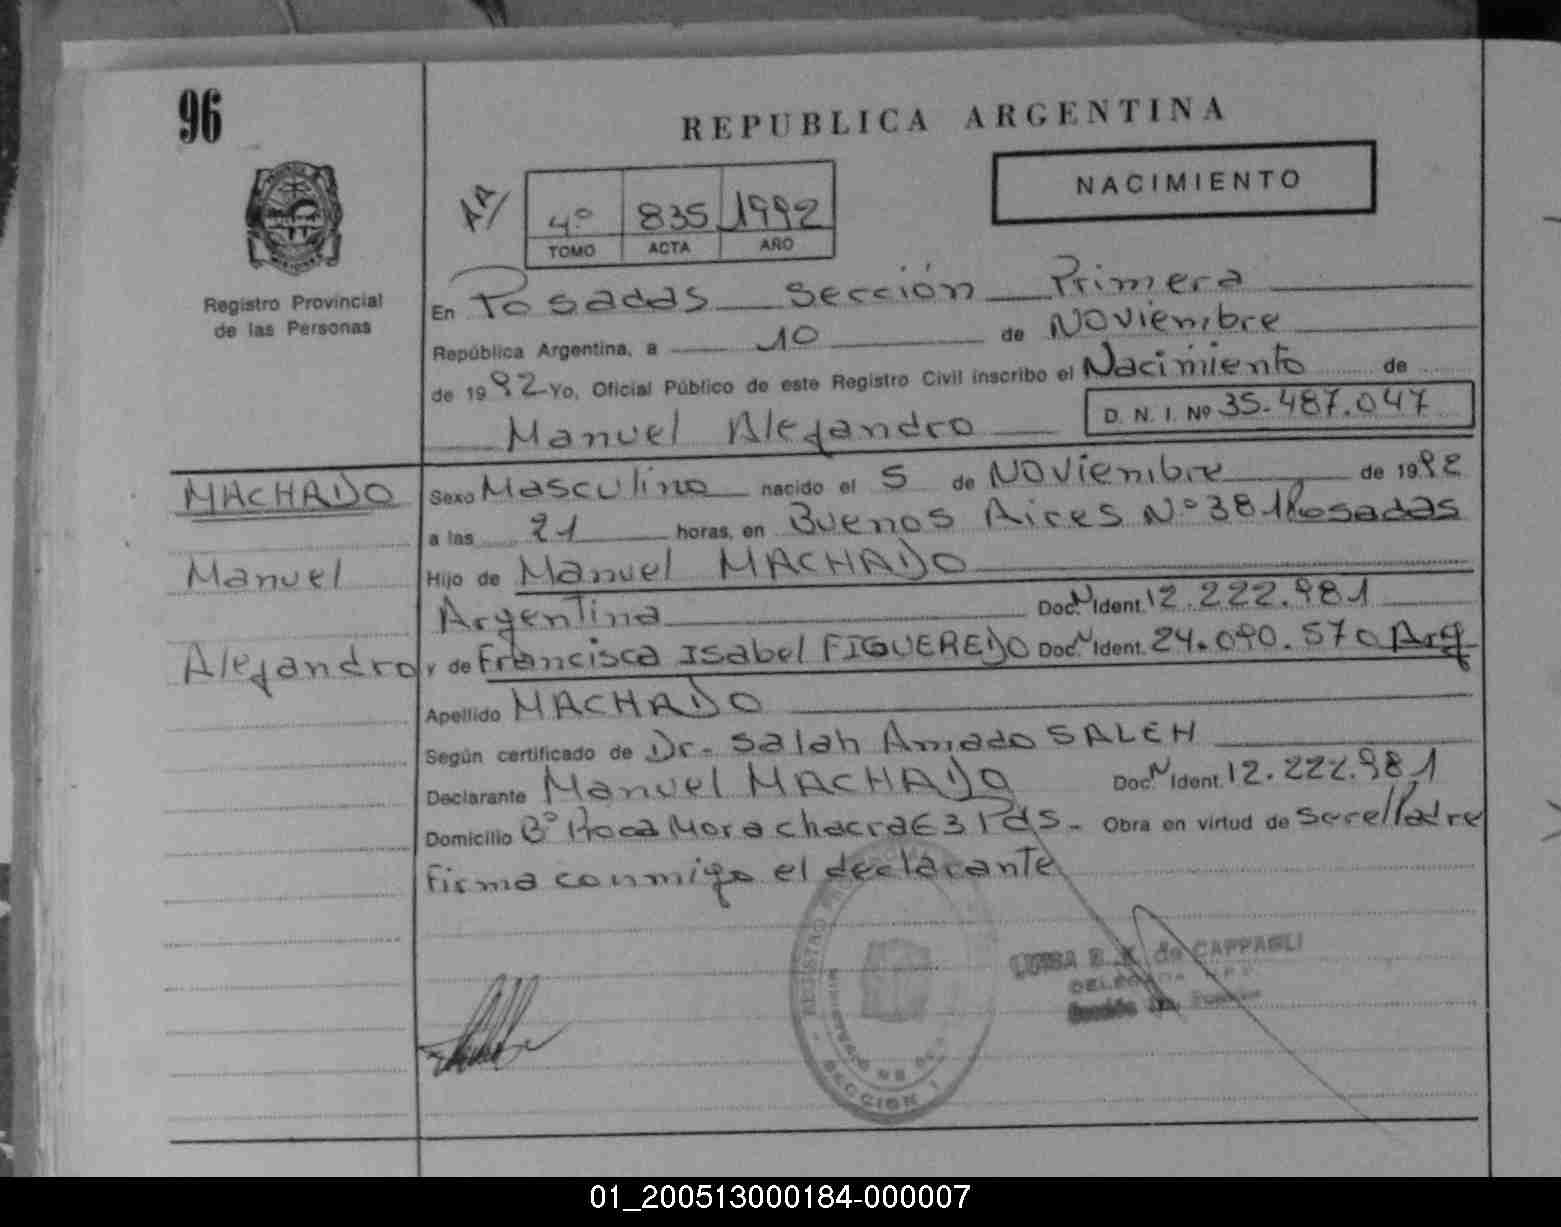 96
REPUBLICA ARGENTINA
NACIMIENTO
4º 835 1992
TOMO ACTA AÑO
Registro Provincial
de las Personas
En Posadas Sección Primera
República Argentina, a 10 de Noviembre
de 1992 Yo, Oficial Público de este Registro Civil inscribo el Nacimiento de
Manuel Alejandro D. N. I. Nº 35.487.047
MACHADO
Manuel
Alejandro
Sexo Masculino nacido el 5 de Noviembre de 1992
a las 21 horas, en Buenos Aires Nº 381 Posadas
Hijo de Manuel MACHADO
Argentina Doc. N Ident. 12.222.981
y de Francisca Isabel FIGUEREDO Doc. N Ident. 24.090.570 Arg
Apellido MACHADO
Según certificado de Dr. Salah Amado SALEH
Declarante Manuel MACHADO Doc. N Ident. 12.222.981
Domicilio Bº Roca Mora chacra 63 Pds. Obra en virtud de ser el Padre
Firma conmigo el declarante
REGISTRO
SECCION 1
de CAPPAGLI
01_200513000184-000007